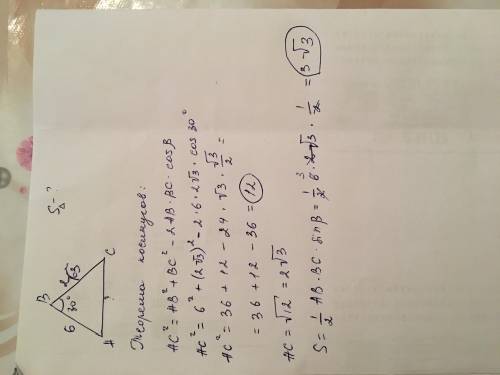 S△ - ?
B
6 30° 2√3
A C
Теорема косинусов:
AC² = AB² + BC² - 2AB · BC · cosβ
AC² = 6² + (2√3)² - 2 · 6 · 2√3 · cos 30°
AC² = 36 + 12 - 24 · √3 · √3/2 =
= 36 + 12 - 36 = 12
AC = √12 = 2√3
S = 1/2 AB · BC · sin β = 1/2 6 · 2√3 · 1/2 = 3√3